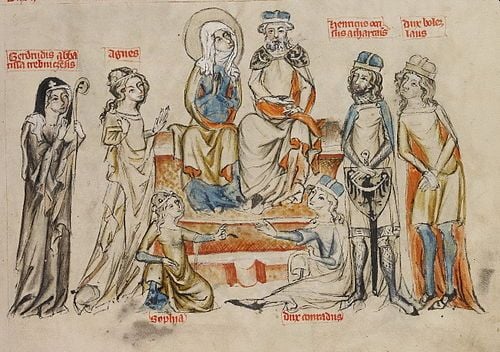 Gerdrudis abba
tissa trebnicēsis
agnes
Henricus occi
sus a thartaris
dux boles
laus
Sophia
dux conradus